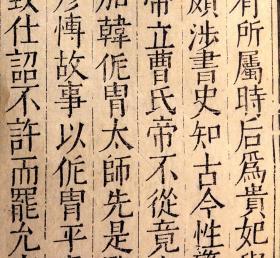 有所屬時后爲貴妃
頗涉書史知古今性
帝立曹氏帝不從竟
加韓侂胄太師先是
彥博故事以侂胄平
致仕詔不許而罷允